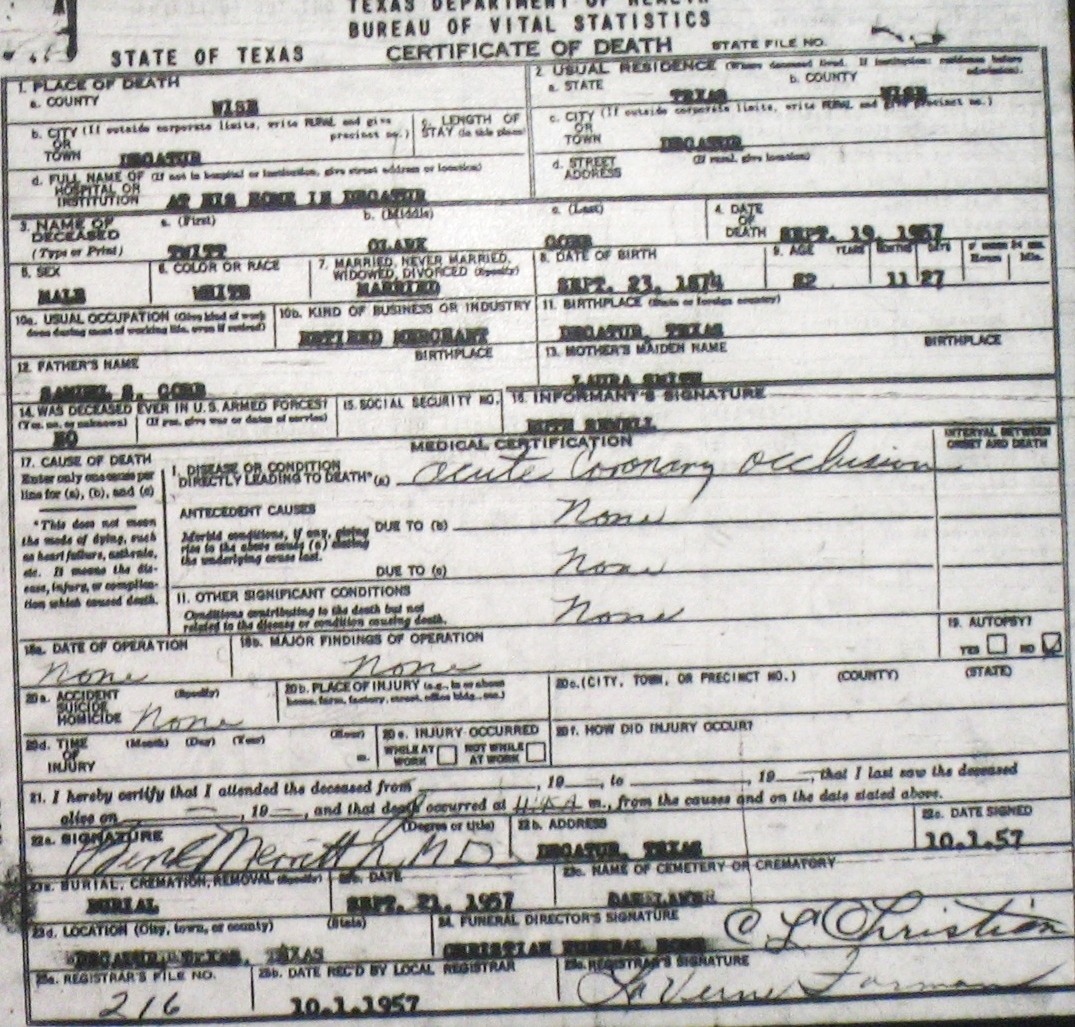 TEXAS DEPARTMENT OF HEALTH
BUREAU OF VITAL STATISTICS
STATE OF TEXAS CERTIFICATE OF DEATH STATE FILE NO.
1. PLACE OF DEATH
a. COUNTY
WISE
2. USUAL RESIDENCE (Where deceased lived. If institution: residence before admission).
a. STATE b. COUNTY
TEXAS WISE
b. CITY (If outside corporate limits, write RURAL and give precinct no.)
OR
TOWN DECATUR
c. LENGTH OF STAY (in this place)
c. CITY (If outside corporate limits, write RURAL and give precinct no.)
OR
TOWN DECATUR
d. FULL NAME OF (If not in hospital or institution, give street address or location)
HOSPITAL OR
INSTITUTION AT HIS HOME IN DECATUR
d. STREET ADDRESS (If rural, give location)
3. NAME OF DECEASED (Type or Print)
a. (First) b. (Middle) c. (Last)
CLARK
4. DATE OF DEATH SEPT. 19, 1957
5. SEX
MALE
6. COLOR OR RACE
WHITE
7. MARRIED, NEVER MARRIED, WIDOWED, DIVORCED (Specify)
MARRIED
8. DATE OF BIRTH
SEPT. 23, 1874
9. AGE YEARS MONTHS DAYS If under 24 hrs. Hours Min.
82 11 27
10a. USUAL OCCUPATION (Give kind of work done during most of working life, even if retired)
10b. KIND OF BUSINESS OR INDUSTRY
RETIRED MERCHANT
11. BIRTHPLACE (State or foreign country)
DECATUR, TEXAS
12. FATHER'S NAME BIRTHPLACE
SAMUEL S.
13. MOTHER'S MAIDEN NAME BIRTHPLACE
LAURA SMITH
14. WAS DECEASED EVER IN U.S. ARMED FORCES?
(Yes, no, or unknown) (If yes, give war or dates of service)
NO
15. SOCIAL SECURITY NO.
16. INFORMANT'S SIGNATURE
RUTH SEWELL
MEDICAL CERTIFICATION
INTERVAL BETWEEN ONSET AND DEATH
17. CAUSE OF DEATH
Enter only one cause per line for (a), (b), and (c)
*This does not mean the mode of dying, such as heart failure, asthenia, etc. It means the disease, injury, or complication which caused death.
I. DISEASE OR CONDITION DIRECTLY LEADING TO DEATH* (a) Acute Coronary Occlusion
ANTECEDENT CAUSES
Morbid conditions, if any, giving rise to the above cause (a) stating the underlying cause last.
DUE TO (b) None
DUE TO (c) None
II. OTHER SIGNIFICANT CONDITIONS
Conditions contributing to the death but not related to the disease or condition causing death.
None
18a. DATE OF OPERATION
None
18b. MAJOR FINDINGS OF OPERATION
None
19. AUTOPSY?
YES NO
20a. ACCIDENT (Specify)
SUICIDE
HOMICIDE None
20b. PLACE OF INJURY (e.g., in or about home, farm, factory, street, office bldg., etc.)
20c. (CITY, TOWN, OR PRECINCT NO.) (COUNTY) (STATE)
20d. TIME OF INJURY (Month) (Day) (Year) (Hour) m.
20e. INJURY OCCURRED
WHILE AT WORK NOT WHILE AT WORK
20f. HOW DID INJURY OCCUR?
21. I hereby certify that I attended the deceased from , 19 , to , 19 , that I last saw the deceased
alive on , 19 , and that death occurred at m., from the causes and on the date stated above.
22a. SIGNATURE (Degree or title)
Merritt M.D.
22b. ADDRESS
DECATUR, TEXAS
22c. DATE SIGNED
10.1.57
23a. BURIAL, CREMATION, REMOVAL (Specify)
BURIAL
23b. DATE
SEPT. 21, 1957
23c. NAME OF CEMETERY OR CREMATORY
23d. LOCATION (City, town, or county) (State)
DECATUR TEXAS
24. FUNERAL DIRECTOR'S SIGNATURE
CHRISTIAN FUNERAL HOME C L Christian
25a. REGISTRAR'S FILE NO.
216
25b. DATE REC'D BY LOCAL REGISTRAR
10.1.1957
25c. REGISTRAR'S SIGNATURE
LaVerne Forman